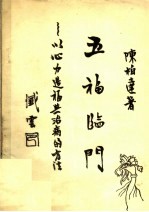 陳柏達著
五福臨門
—以心力造福與治病的方法